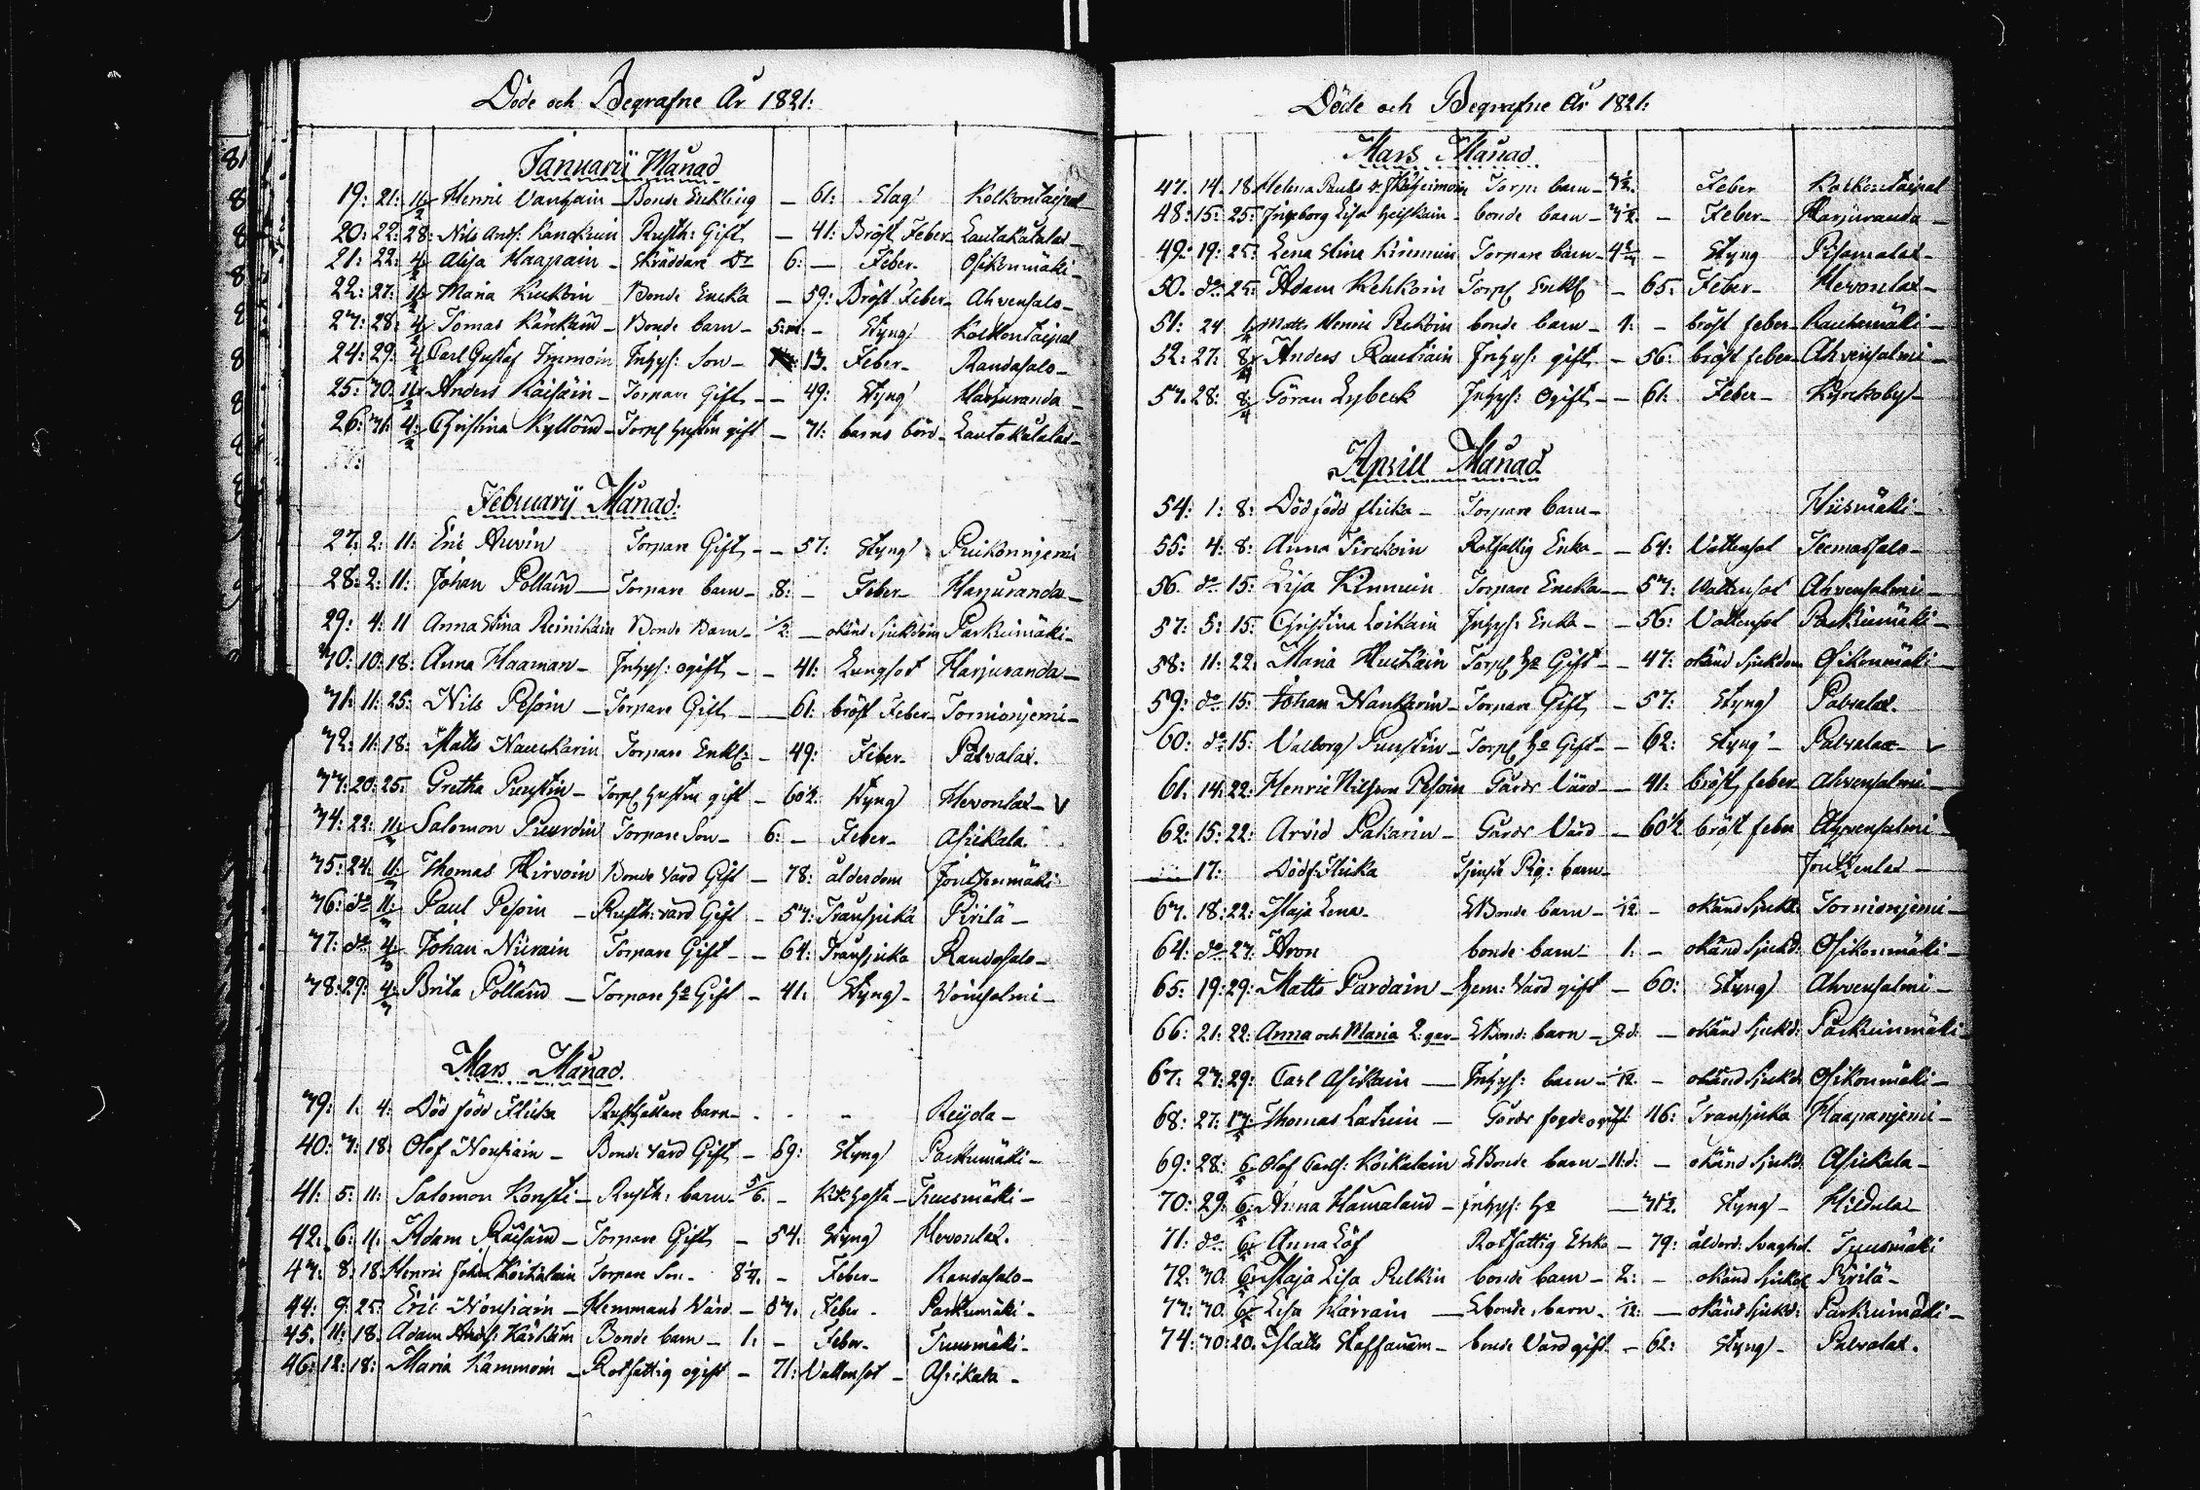 Döde och Begrafne År 1821:
Januarii Månad
19: 21: 11/2 Henric Vanhain - Bonde Enkling - 61: Slag Kolkontaipal
20: 22: 28: Nils Ands: Rusth: Gift - 41: Bröst Feber - Lautakatalax -
21: 22: 4/2 Haapain - Skräddare Dr 6: - Feber - Osikonmäki -
22: 27: 11/2 Maria Kuckoin Bonde Encka - 59: Bröst Feber - Ahvensalo -
23: 28: 4/2 Tomas Bonde barn - 5: m: - Styng Kolkontaipal
24: 29: 4/2 Carl Gustaf Immoin Inhys: Son - 13. Feber - Randasalo -
25: 30: 11/2 Anders Räisäin - Torpare Gift - - 49: Styng Harjuranda -
26: 31: 4/2 Christina Kyllöind - Torp hustru gift - 31: barns börd - Lautakatalax -
Februarii Månad:
27: 2: 11: Eric Auvin Torpare Gift - - 53: Styng
28: 2: 11: Johan Pölländ - Torpare barn - 8: - Feber - Harjuranda -
29: 4: 11 Anna Stina Reinikain Bonde Barn - 1/2 - okänd sjukdom Parkumäki -
30: 10: 18: Anna Haaman - Inhys: ogift - - 41: Lungsot Harjuranda -
31: 11: 25: Nils Pesoin - Torpare Gift - - 61: bröst Feber - Tornionjemi -
32: 11: 18: Matts Nauckarin Torpare Enkl: - 49: Feber - Patvalax.
33: 20: 25: Gretha Punstin - Torp hustru gift - 60 1/2 Styng Hevonlax - V
34: 22: 11/3 Salomon Torpare Son - 6: - Feber - Asickala
35: 24: 11/3 Thomas Hirvoin Bonde Värd Gift - 78: ålderdom
36: do 11/3 Paul Pesoin - Rusth: värd Gift - 53: Transjuka Pirilä -
37: do 4/3 Johan Niirain Torpare Gift - - 64: Transjuka Randasalo -
38: 29: 4/3 Brita Pölländ - Torpare ha Gift - 41: Styng - Voinsalmi -
Mars Månad.
39: 1. 4: Död född Flicka Rusthållare barn - - - Reijola -
40: 3: 18: Olof Nousiain - Bonde Värd Gift - 69: Styng Parkumäki -
41: 5: 11: Salomon Konsti - Rusth: barn - 5/6. - Kikhosta - Tuusmäki -
42: 6: 11: Adam Räisänd - Torpare Gift - 54: Styng Hevonlax.
43: 8: 18 Henric Johan Koikalain Torpare Son - 8 1/4. - Feber - Randasalo -
44: 9: 25: Eric Nousiain - Hemmans Värd - 63. Feber - Parkumäki -
45. 11: 18: Adam Ands: Kärkäin Bonde barn - 1: - Feber - Tuusmäki -
46: 12: 18: Maria Kammoin - Rotfattig ogift - 71: Vattensot - Asikala -
Döde och Begrafne År 1821:
Mars Månad
47. 14. 18. Helena Pauls dr Torp: barn - 3 1/2. Feber Kolkontaipal
48: 15: 25: Ingeborg Lisa Heiskain - bonde barn - 3 1/2 - Feber - Harjuranda -
49: 19: 25: Lena Stina Kinnuin Torpare barn - - Styng Pesomalax -
50. do 25: Adam Kehkoin Torp Enkl - 65: Feber - Hevonlax -
51: 24 1/4 Matts Henric bonde barn - 1: - bröst feber - Rauhamäki -
52: 27: 8/4 Anders Rautiain Inhys: gift - 56: bröst feber - Ahvensalmi -
53. 28: 8/4 Göran Lybeck Inhys: Ogift - - 61: Feber - Kyrckoby -
Aprill Månad
54: 1: 8: Död född flicka - Torpare barn - Hiismäki -
55: 4: 8: Anna Tirckoin Rotfattig Enka - - 64: Vattensot Teemassalo -
56. do 15: Lisa Kinnuin Torpare Encka - - 53: Vattensot Ahvensalmi -
57: 5: 15: Christina Loikain Inhys: Enka - - 56: Vattensot Parkumäki -
58: 11: 22: Maria Huckain Torp ha Gift - - 47: okänd sjukdom Osikonmäki -
59: do 15: Johan Nankarin - Torpare Gift - 53: Styng Patvalax.
60: do 15: Valborg Punstin - Torp ha Gift - - 62: Styng - Patvalax - V
61. 14: 22: Henric Nilsson Pesoin Gårds Värd - - 41: bröst feber Ahvensalmi -
62: 15: 22: Arvid Pakarin - Gårds Värd - 60 1/2 bröst feber Ahvensalmi -
17: Dödf: Flicka Tjenste Pig: barn -
63. 18: 22: Maja Lena - Bonde barn - 1/12 - okänd sjukd: Tornionjemi -
64: do 23: Aron bonde barn - 1: - okänd sjukd: Osikonmäki -
65: 19: 29: Matts Pardain - hem: Värd gift - 60: Styng Ahvensalmi -
66: 21: 22: Anna och Maria 2: Bond: barn - d: - okänd sjukd: Parkuinmäki -
67: 23: 29: Carl Asikain - Inhys: barn - 1/12 - okänd sjukd: Osikonmäki -
68: 27: 13/5 Thomas Laturin - Gårds fogde ogift: 46: Transjuka Haapanjemi -
69: 28: 6/5 Olof Carls: Koikalain Bonde barn - 11: d: - okänd sjukd: Asickala -
70: 29: 6/5 Anna Hämäländ - Inhys: ha - 71 1/2. Styng - Hildula
71: do 6/5 Anna Löf Rotfattig Encka - 79: ålderd: svaghet Tuusmäki
72: 30. 6/5 Maja Lisa Pulkin bonde barn - 2: - okänd sjukd Pirilä -
73: 30. 6/5 Lisa Kärrain - bonde: barn - 1/12: - okänd sjukd: Parkuimäki -
74: 30: 20. Matts Staffanäin - bonde Värd gift - - 62: Styng - Patvalax.